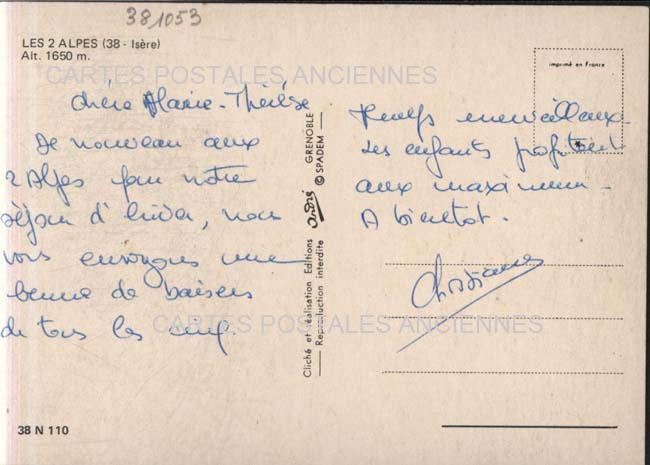 381053
LES 2 ALPES (38 - Isère)
Alt. 1650 m.
CARTES POSTALES ANCIENNES
imprimé en France
chère Marie-Thérèse
De nouveau aux
2 Alpes pour notre
séjour d'hiver, nous
vous envoyons une
benne de baisers
de tous les cinq.
Temps merveilleux.
Les enfants profitent
aux maximum.
A bientot.
Christiane
Cliché et réalisation Editions André GRENOBLE
Reproduction interdite © SPADEM
CARTES POSTALES ANCIENNES
38 N 110